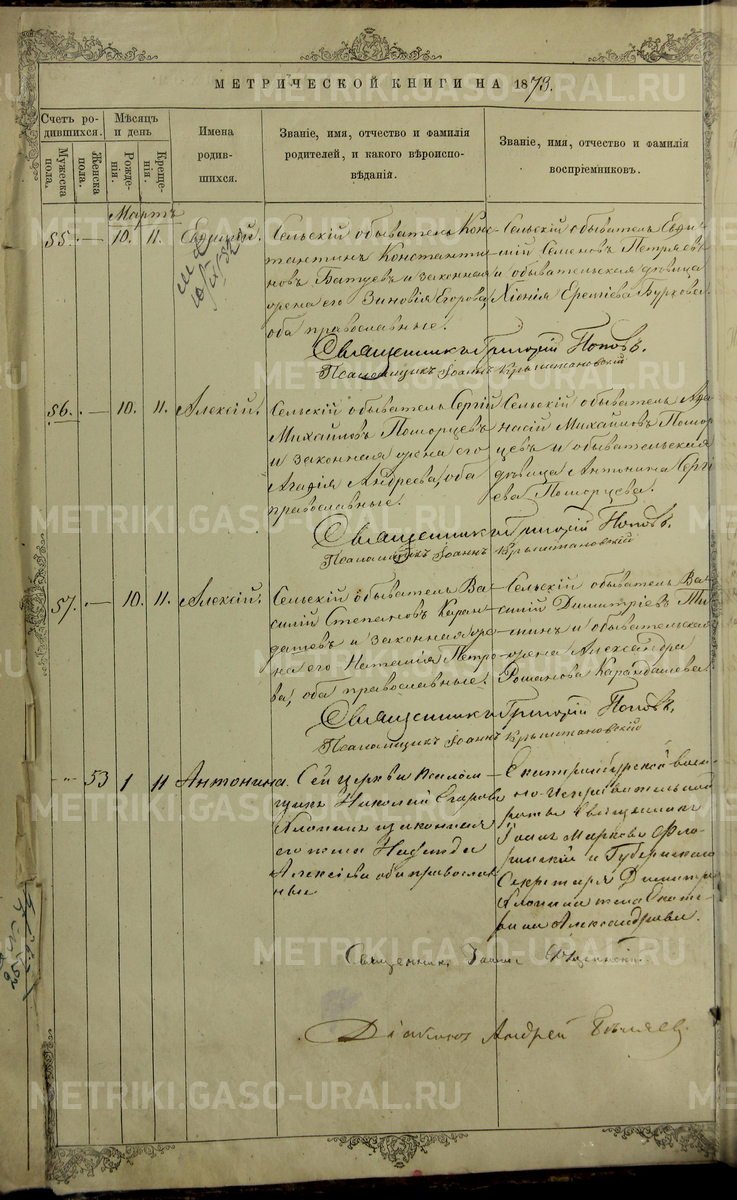 МЕТРИЧЕСКОЙ КНИГИ НА 1873.
Счетъ родившихся.
Мужеска пола.
Женска пола.
Мѣсяцъ и день
Рожденія.
Крещенія.
Имена родившихся.
Званіе, имя, отчество и фамилія родителей, и какого вѣроисповѣданія.
Званіе, имя, отчество и фамилія воспріемниковъ.
Мартъ
55. — 10. 11. Евфимій.
Сельскій обыватель Конс-
тантинъ Константи-
новъ Батуев и законная
жена его Зиновія Егорова,
оба православные.
Сельскій обыватель Евфи-
мій Семеновъ Петряевъ
и обывательская дѣвица
Хіонія Ереміева Бурхова.
Священникъ Григорій Поповъ.
Псаломщикъ Іоаннъ Крыштановскій
56. — 10. 11. Алексій.
Сельскій обыватель Сергій
Михайловъ Поморцевъ
и законная жена его
Агафія Андреева, оба
православные.
Сельскій обыватель Афа-
насій Михайловъ Помор-
цевъ и обывательская
дѣвица Антонина Серги-
ева Поморцева.
Священникъ Григорій Поповъ.
Псаломщикъ Іоаннъ Крыштановскій
57. — 10. 11. Алексій.
Сельскій обыватель Ва-
силій Степановъ Каран-
дашевъ и законная же-
на его Наталія Петро-
ва, оба православные.
Сельскій обыватель Ва-
силій Димитріевъ
и обывательская
жена Александра
Романова Карандашева.
Священникъ Григорій Поповъ.
Псаломщикъ Іоаннъ Крыштановскій
— 53 1 11 Антонина.
Сей церкви Псалом-
щикъ Николай Егоровъ
и законная
его жена Надежда
Алексіева оба православ-
ные
Екатеринбургской воен-
но-исправительной
роты Священникъ
Іоаннъ Марковъ Фло-
ринскій и Губернскаго
Секретаря Димитрія
жена Екате-
рина Александрова.
Священникъ Іоаннъ Флоринскій.
Діаконъ Андрей
METRIKI.GASO-URAL.RU